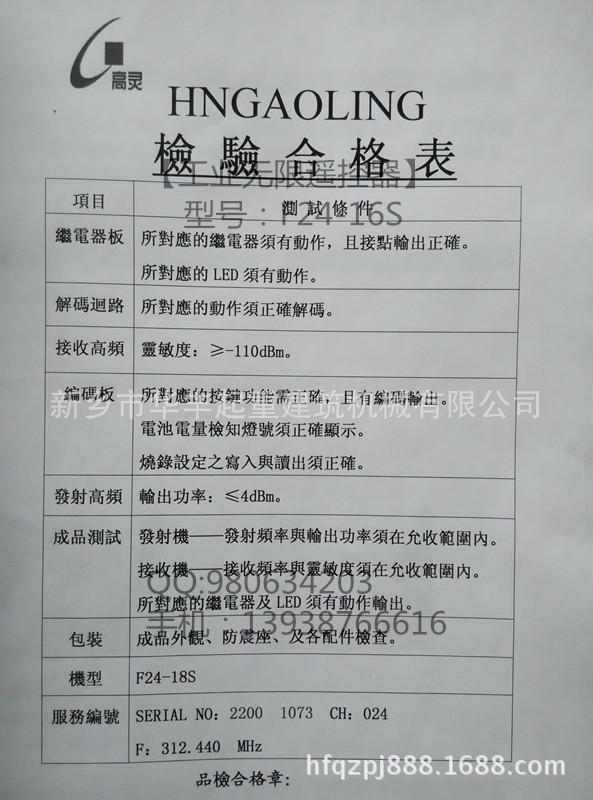 高灵
HNGAOLING
檢驗合格表
【工业无限遥控器】
型号：F24-16S
項目 測試條件
繼電器板 所對應的繼電器須有動作，且接點輸出正確。
所對應的 LED 須有動作。
解碼迴路 所對應的動作須正確解碼。
接收高頻 靈敏度：≥-110dBm。
编碼板 所對應的按鍵功能需正確，且有编碼輸出。
新乡市华芊起重建筑机械有限公司
電池電量檢知燈號須正確顯示。
燒錄設定之寫入與讀出須正確。
發射高頻 輸出功率：≤4dBm。
成品測試 發射機——發射頻率與輸出功率須在允收範圍內。
接收機——接收頻率與靈敏度須在允收範圍內。
QQ:980634203
所對應的繼電器及 LED 須有動作輸出。
手机：13938766616
包裝 成品外觀、防震座、及各配件檢查。
機型 F24-18S
服務編號 SERIAL NO: 2200 1073 CH: 024
F: 312.440 MHz
品檢合格章:
hfqzpj888.1688.com